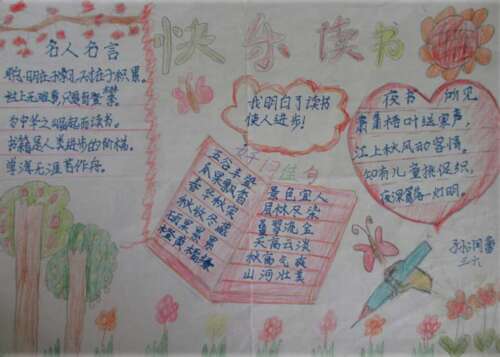 快乐读书
名人名言
聪明在于学习,天才在于积累。
世上无难事,只要肯登攀
为中华之崛起而读书。
书籍是人类进步的阶梯。
学海无涯苦作舟。
我明白了读书
使人进步!
好词佳句
五谷丰登
瓜果飘香
春华秋实
秋收冬藏
硕果累累
橙黄橘绿
景色宜人
层林尽染
叠翠流金
天高云淡
秋高气爽
山河壮美
夜书所见
萧萧梧叶送寒声,
江上秋风动客情。
知有儿童挑促织,
夜深篱落一灯明。
三六